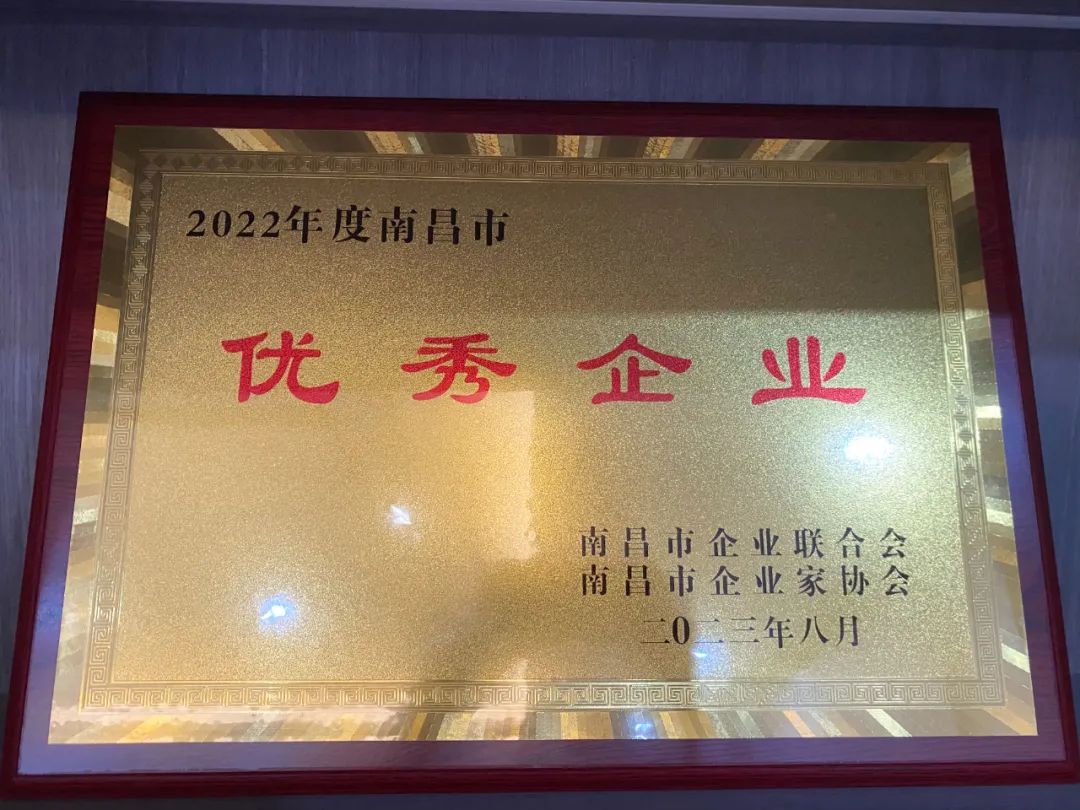 2022年度南昌市
优秀企业
南昌市企业联合会
南昌市企业家协会
二0二三年八月